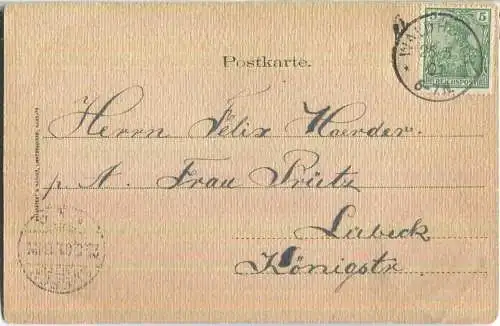 Postkarte.
5
REICHSPOST
Herrn Felix Haerder.
p. A. Frau Prütz
Lübeck
Königstr.